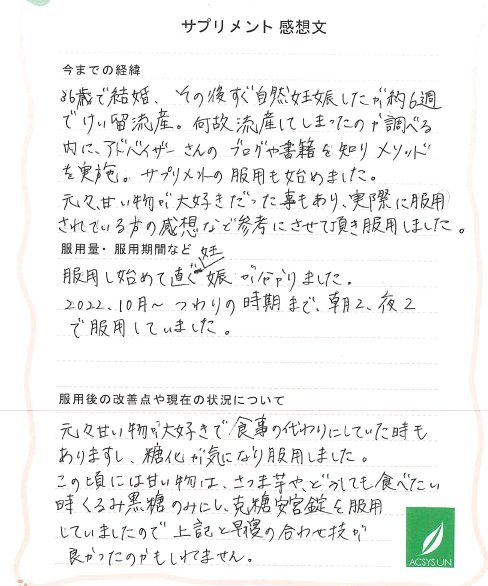 サプリメント 感想文
今までの経緯
36歳で結婚、その後すぐ自然妊娠したが約6週
でけい留流産。何故流産してしまったのか調べる
内に、アドバイザーさんのブログや書籍を知りメソッド
を実施。サプリメントの服用も始めました。
元々甘い物が大好きだった事もあり、実際に服用
されている方の感想など参考にさせて頂き服用しました。
服用量・服用期間など
服用し始めて直ぐ妊娠が分かりました。
2022.10月~つわりの時期まで、朝2、夜2
で服用していました。
服用後の改善点や現在の状況について
元々甘い物が大好きで食事の代わりにしていた時も
ありますし、糖化が気になり服用しました。
この頃には甘い物は、さつま芋や、どうしても食べたい
時くるみ黒糖のみにし、克糖安宮錠を服用
していましたので上記と早寝の合わせ技が
良かったのかもしれません。
ACSYSUN